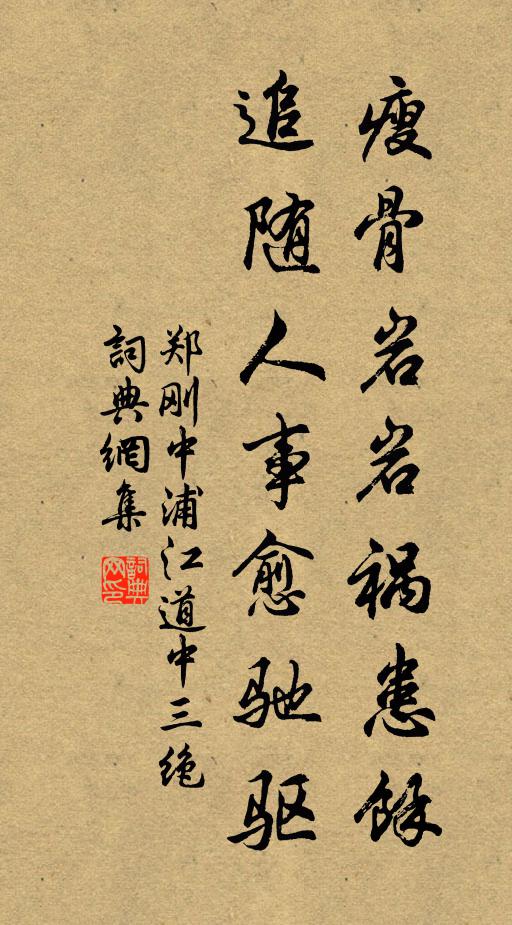 瘦骨岩岩祸患餘
追随人事愈驰驱
郑刚中浦江道中三绝
詞典網集
詞典网印